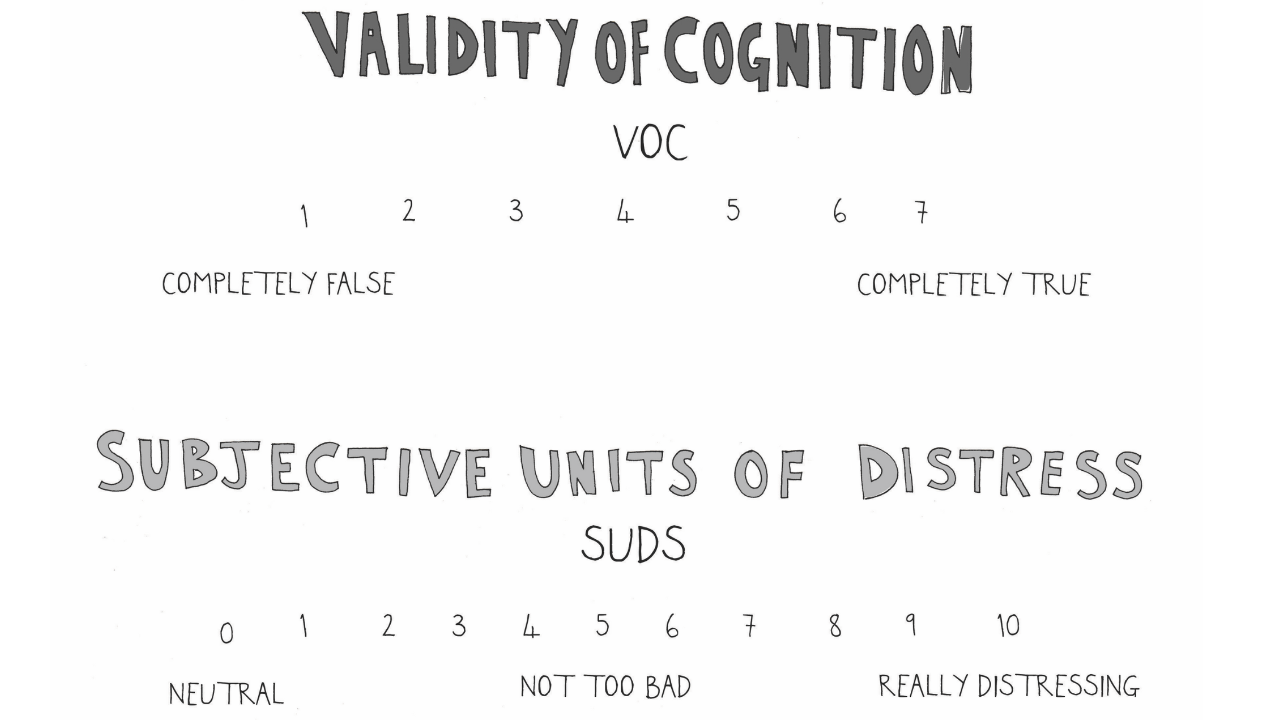 VALIDITY OF COGNITION
VOC
1 2 3 4 5 6 7
COMPLETELY FALSE COMPLETELY TRUE
SUBJECTIVE UNITS OF DISTRESS
SUDS
0 1 2 3 4 5 6 7 8 9 10
NEUTRAL NOT TOO BAD REALLY DISTRESSING